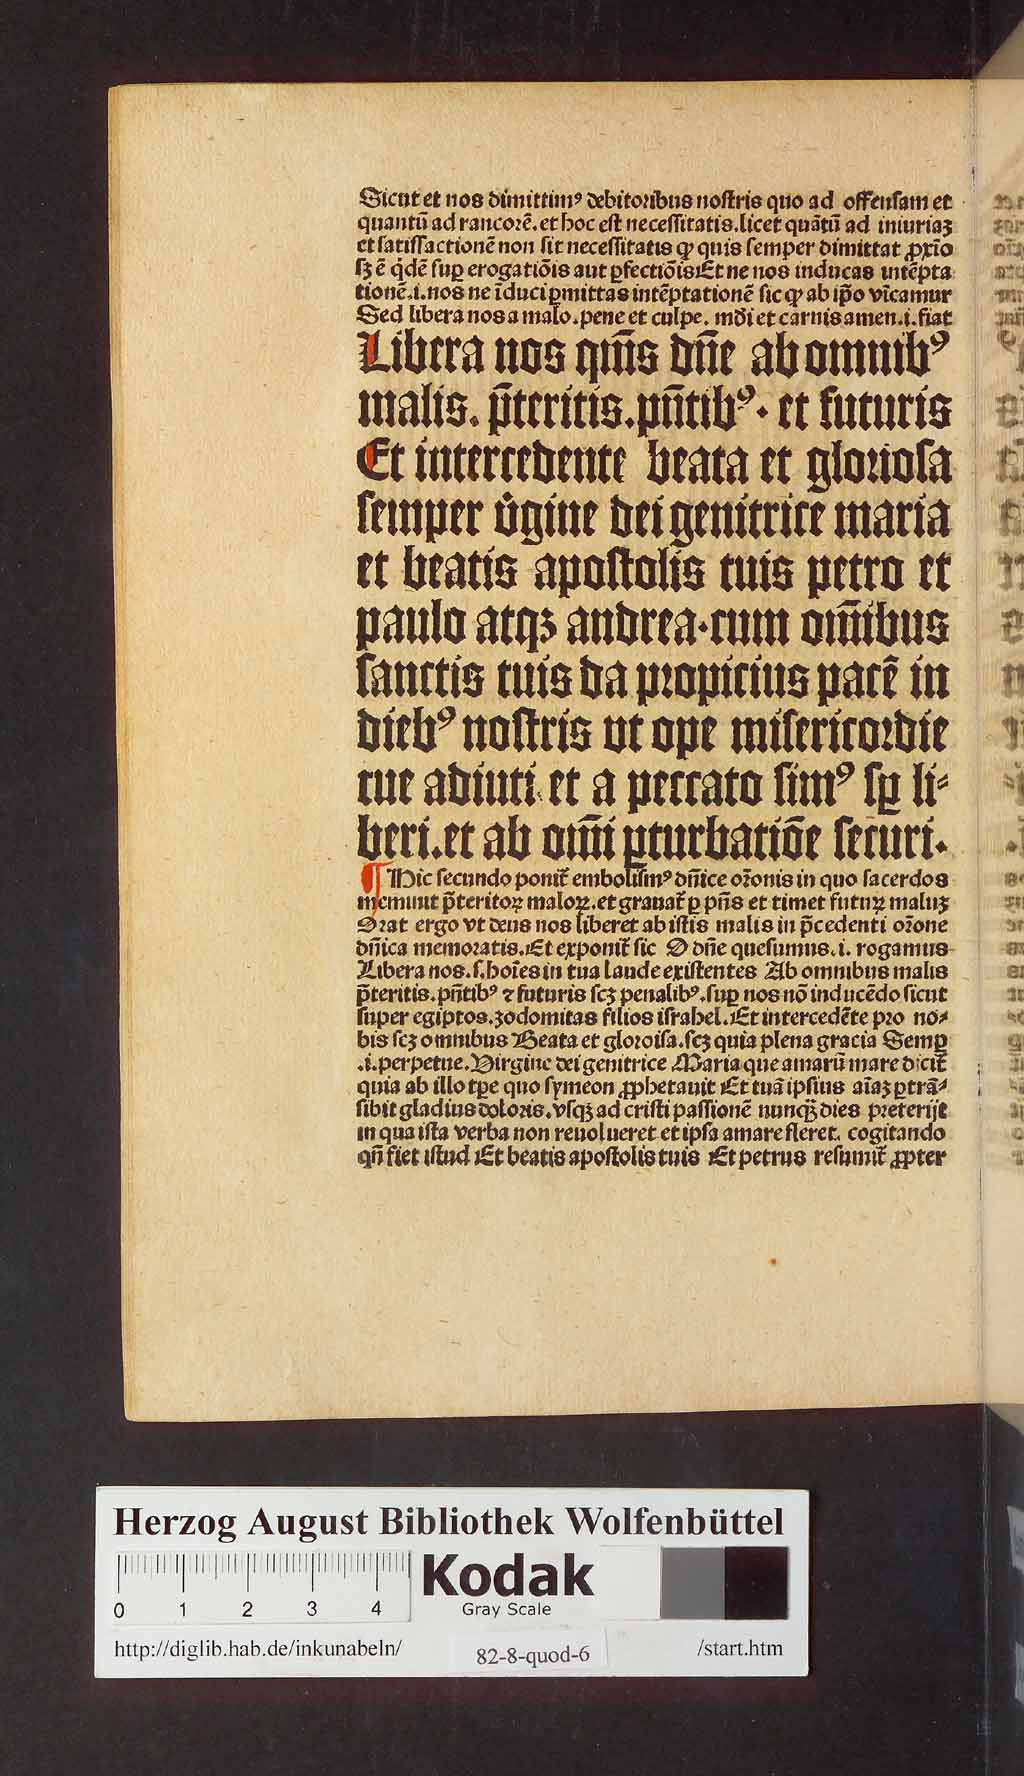 Sicut et nos dimittimꝰ debitoribus nostris quo ad offensam et
quantū ad rancorē. et hoc est necessitatis. licet quātū ad iniuriaꝫ
et satisfactionē non sit necessitatis ꝙ quis semper dimittat ꝓxīo
sꝫ ē q̇dē suꝑ erogatiōis aut ꝑfectiōis Et ne nos inducas intēpta
tionē .i. nos ne īduci ꝑmittas intēptationē sic ꝙ ab ip̄o vīcamur
Sed libera nos a malo. pene et culpe. mūdi et carnis amen .i. fiat
Libera nos qm̄s dn̄e ab omnibꝰ
malis. p̄teritis. pn̄tibꝰ· et futuris
Et intercedente beata et gloriosa
semper v̊gine dei genitrice maria
et beatis apostolis tuis petro et
paulo atqꝫ andrea· cum om̄ibus
sanctis tuis da propicius pacē in
diebꝰ nostris vt ope misericordie
tue adiuti et a peccato simꝰ sꝑ li⸗
beri. et ab om̄i ꝑturbatiōe securi.
¶ Hic secundo ponit̄ embolismꝰ dn̄ice or̄onis in quo sacerdos
meminit p̄teritoꝝ maloꝝ. et grauat̄ ꝑ pn̄s et timet futuꝝ maluꝫ
Orat ergo vt deus nos liberet ab istis malis in p̄cedenti or̄one
dn̄ica memoratis. Et exponit̄ sic O dn̄e quesumus .i. rogamus
Libera nos. s. hoīes in tua laude existentes Ab omnibus malis
p̄teritis. pn̄tibꝰ ⁊ futuris scꝫ penalibꝰ. suꝑ nos nō inducēdo sicut
super egiptos. zodomitas filios israhel. Et intercedēte pro no⸗
bis scꝫ omnibus Beata et gloroisa. scꝫ quia plena gracia Semꝑ
.i. perpetue. Virgine dei genitrice Maria que amarū mare dicit̄
quia ab illo tꝑe quo symeon ꝓphetauit Et tuā ipsius aīaꝫ ꝑtrā⸗
sibit gladius doloris. vsqꝫ ad cristi passionē nunqꝫ dies preterijt
in qua ista verba non reuolueret et ipsa amare fleret. cogitando
qn̄ fiet istud Et beatis apostolis tuis Et petrus resumit̄ ꝓpter
Herzog August Bibliothek Wolfenbüttel
0 1 2 3 4
Kodak
Gray Scale
http://diglib.hab.de/inkunabeln/
82-8-quod-6
/start.htm